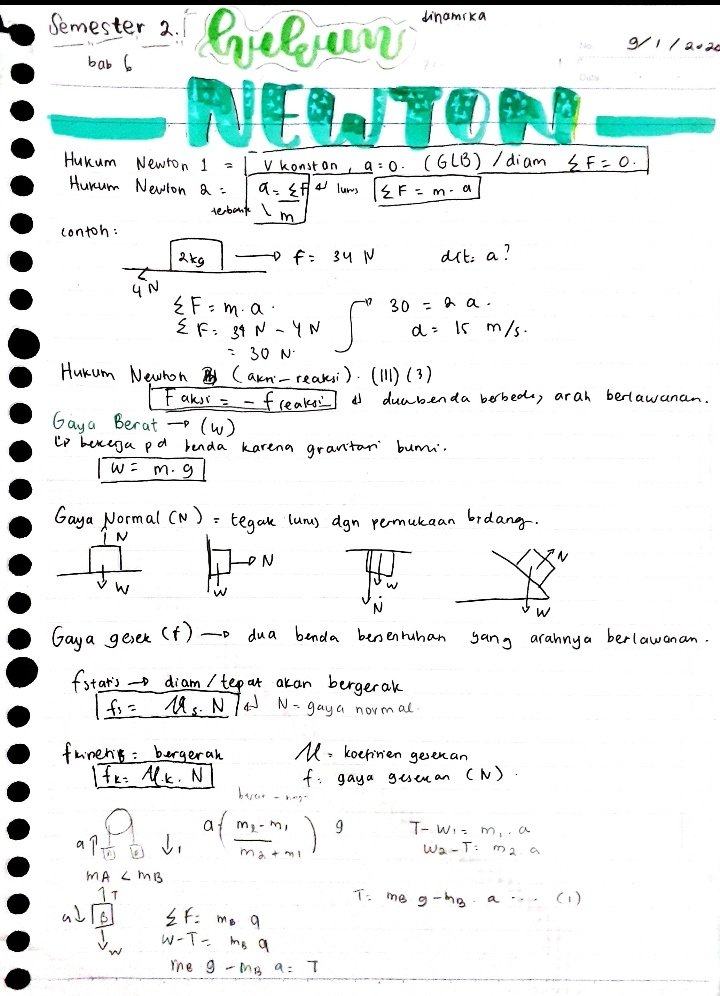 Semester 2.
dinamika
bab 6
hukum
No
Date
9/1/2020
NEWTON
Hukum Newton 1 = V konstan, a=0. (GLB) /diam ΣF=0.
Hukum Newton 2 = a = ΣF/m lurus ΣF = m. a
contoh:
2kg → F= 34 N dit: a?
4 N
ΣF= m. a.
ΣF= 34 N - 4 N
= 30 N.
30 = 2 a.
a= 15 m/s.
Hukum Newton (aksi-reaksi). (III) (3)
F aksi = - f reaksi dua benda berbeda, arah berlawanan.
Gaya Berat → (W)
↳ bekerja pd benda karena gravitasi bumi.
W = m. g
Gaya Normal (N) = tegak lurus dgn permukaan bidang.
N
W
N
W
W
N
N
W
Gaya gesek (f) → dua benda bersentuhan yang arahnya berlawanan.
fstatis → diam/tepat akan bergerak
fs = μs. N N = gaya normal.
fkinetis = bergerak μ = koefisien gesekan
fk= μk. N f= gaya gesekan (N).
a = (m2-m1 / m2+m1) g
a↑ ↓
mA < mB
T- W1= m1. a
W2-T= m2. a
↑T
a↓ B
↓W
ΣF= mB a
W-T= mB a
mB g - mB a = T
T= mB g-mB. a .... (1)